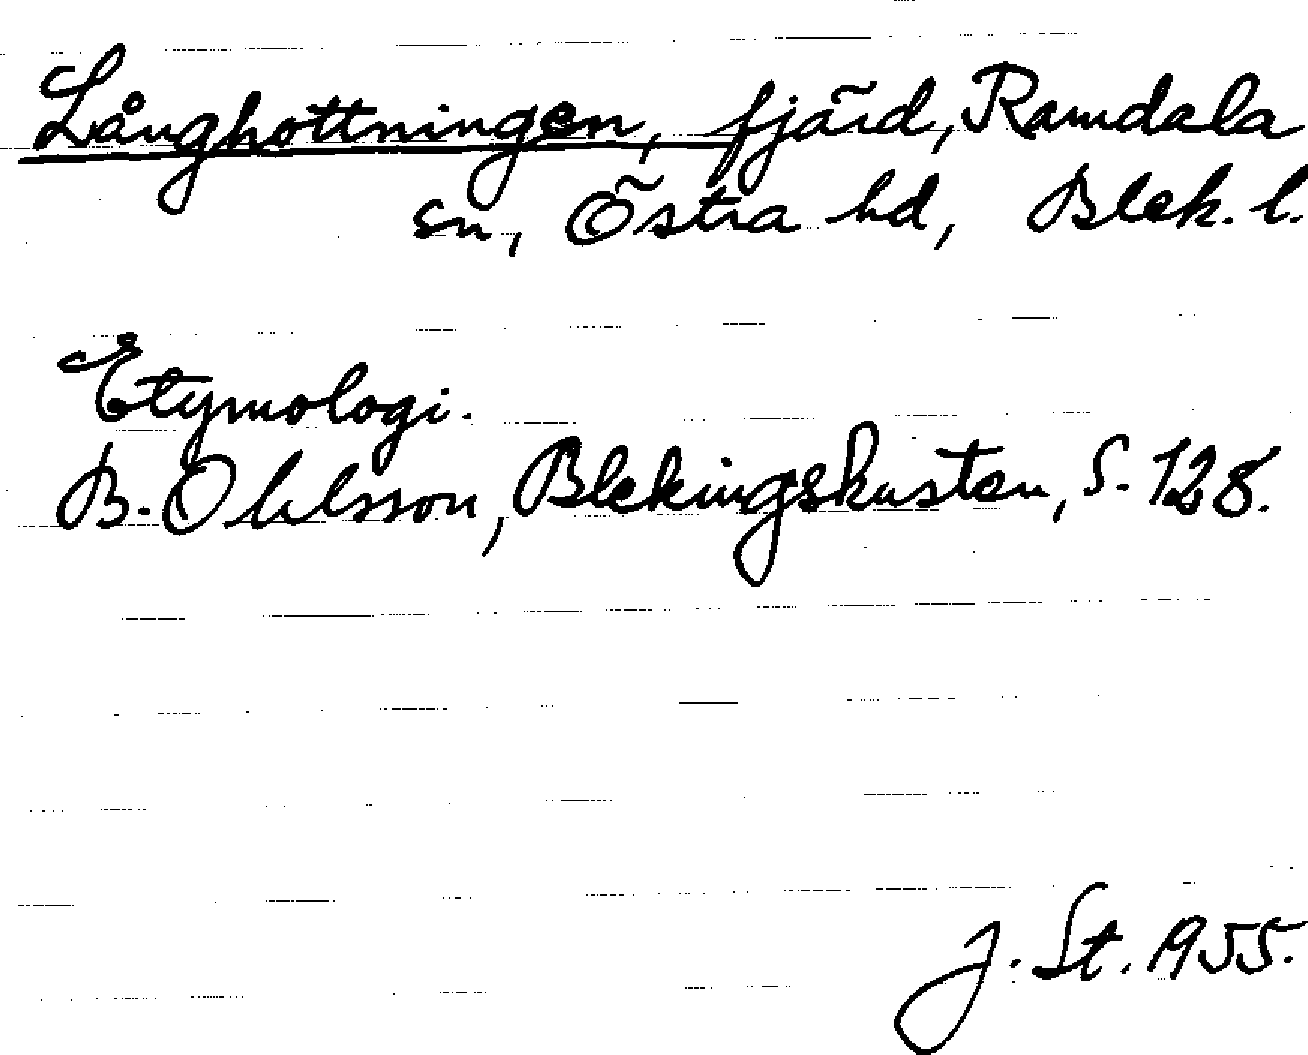 Långhottningen, fjärd, Ramdala
sn, Östra hd, Blek. l.
Etymologi.
B. Ohlsson, Blekingskusten, S. 128.
J. St. 1955.